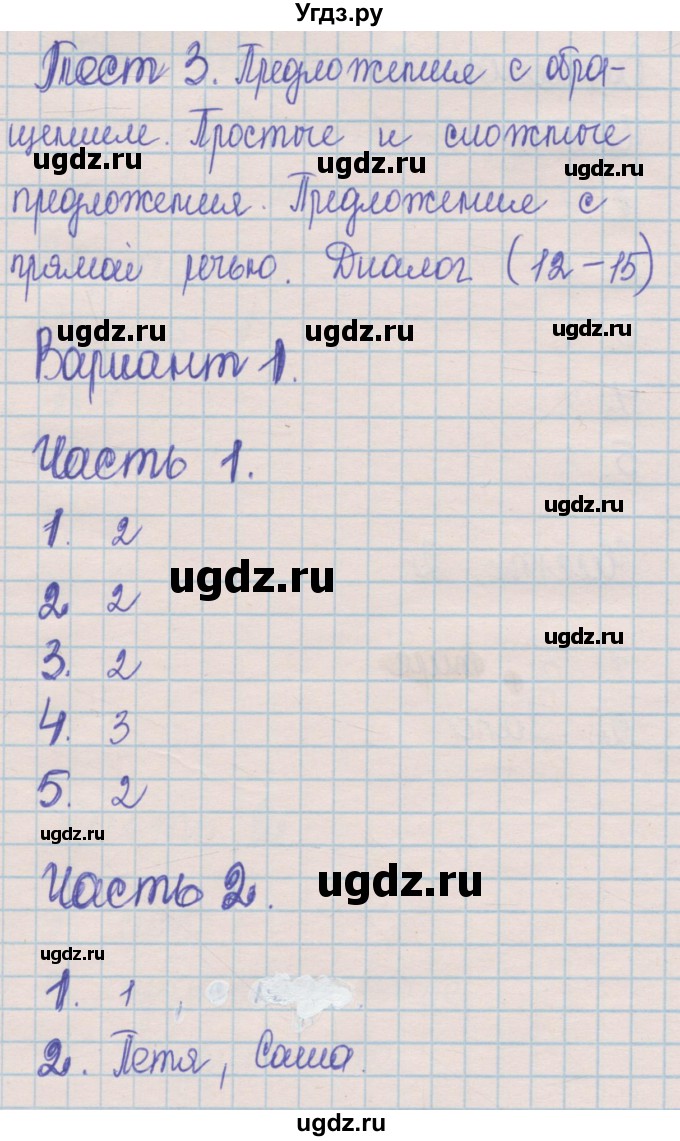 Угдз.ру
Тест 3. Предложения с обра-
щением. Простые и сложные
ugdz.ru ugdz.ru ugdz.ru
предложения. Предложение с
прямой речью. Диалог (12-15)
ugdz.ru ugdz.ru ugdz.ru
Вариант 1.
Часть 1.
ugdz.ru
1. 2
ugdz.ru
2. 2
ugdz.ru
3. 2
4. 3
5. 2
ugdz.ru
Часть 2.
ugdz.ru
ugdz.ru
1. 1 ,
2. Петя, Саша.
ugdz.ru